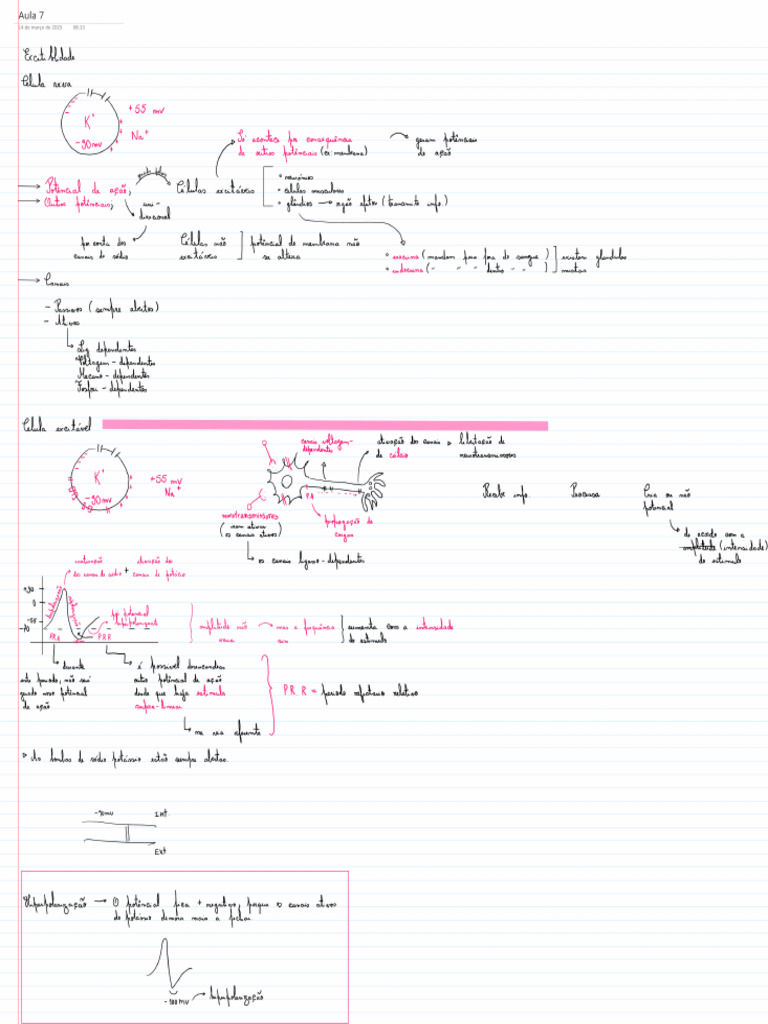 Aula 7
14 de março de 2025 08:13
Excitabilidade
Célula nervosa
K⁺
-90mv
+55 mv
Na⁺
Só acontece por consequência
de outros potenciais (ex: membrana)
geram potenciais
de ação
Potencial de ação;
Outros potenciais;
uni-
direcional
por conta dos
canais de sódio
Células excitáveis
• neurônios
• células musculares
• glândulas → região efetora (transmite info.)
Células não
excitáveis
potencial de membrana não
se altera
• exócrina (mandam para fora do sangue)
• endócrina ( " " " dentro " " )
existem glândulas
mistas
Canais
- Passivos (sempre abertos)
- Ativos
Lig. dependentes
Voltagem - dependentes
Mecano - dependentes
Fosfori - dependentes
Célula excitável
K⁺
-90mv
+55 mv
Na⁺
canais voltagem-
dependentes
ativação dos canais
de cálcio
liberação de
neurotransmissores
PA
neurotransmissores
(vem ativar
os canais ativos)
propagação da
carga
os canais ligante-dependentes
Recebe info.
Processa
Cria ou não
potencial
de acordo com a
amplitude (intensidade)
do estímulo
inativação
dos canais de sódio
ativação dos
+ canais de potássio
0
-55
PRA
PRR
hiperpolarizante
amplitude não
varia
mas a frequência
sim
aumenta com a intensidade
do estímulo
durante
este período, não sei
gerado novo potencial
de ação
é possível desencadear
outro potencial de ação
desde que haja estímulo
supra-limiar
na via aferente
PRR = período refratário relativo
As bombas de sódio potássio estão sempre abertas.
-90mv
Int.
Ext
Hiperpolarização → O potencial fica + negativo, porque os canais ativos
de potássio demora mais a fechar.
-100 mv → hiperpolarização